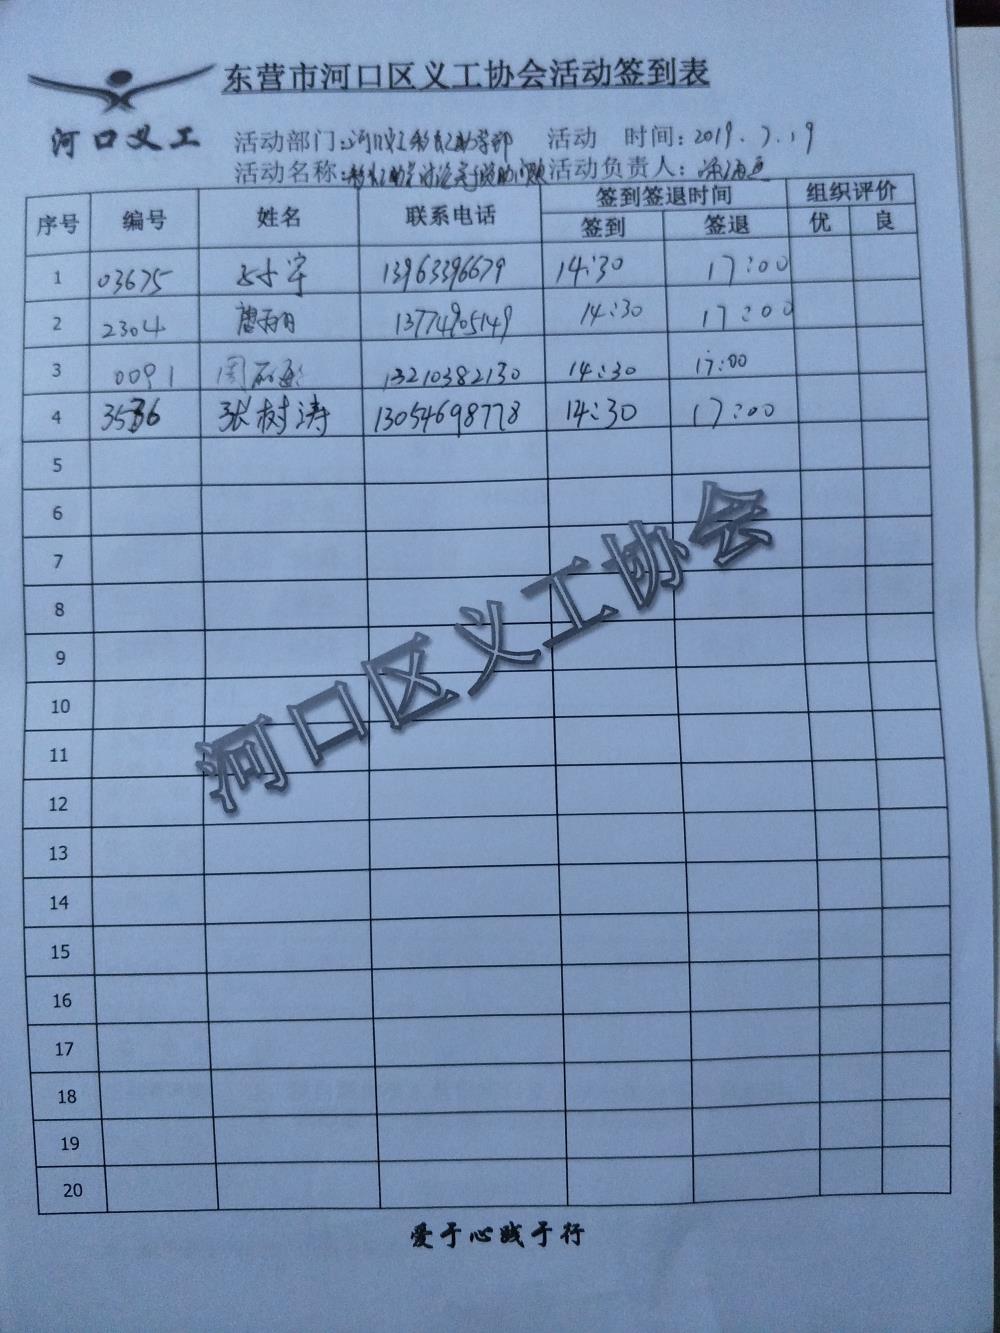 东营市河口区义工协会活动签到表
河口义工
活动部门: 活动 时间: 2019.7.19
活动名称: 活动负责人:
序号 编号 姓名 联系电话 签到签退时间 组织评价
签到 签退 优 良
1 03675 13963396679 14:30 17:00
2 2304 13774905149 14:30 17:00
3 0091 周 13210382130 14:30 17:00
4 张树涛 13054698778 14:30 17:00
5
6
7
8
9
10
11
12
13
14
15
16
17
18
19
20
河口区义工协会
爱于心践于行